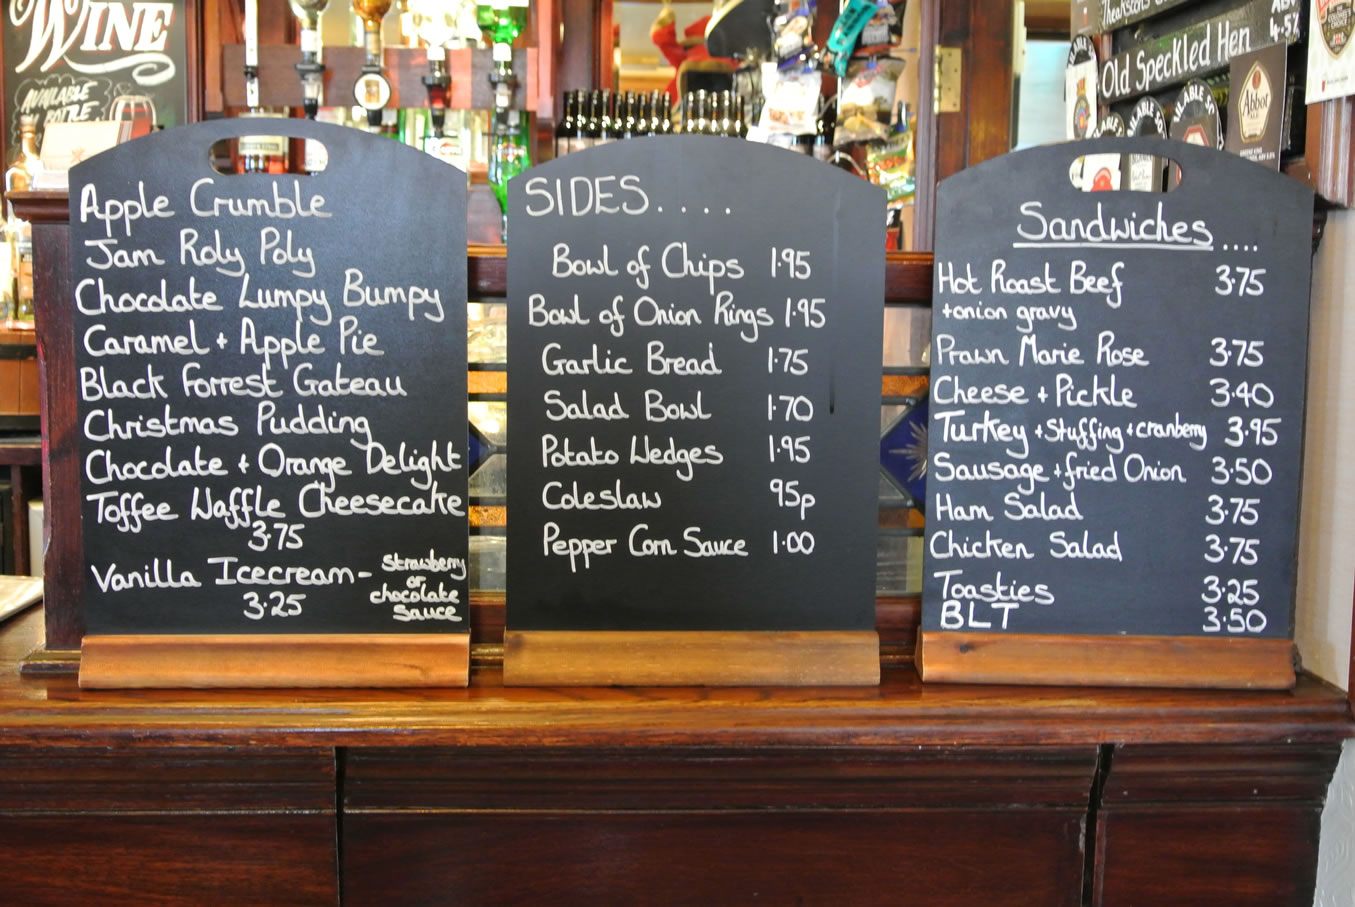 WINE
AVAILABLE
BOTTLE
Apple Crumble
Jam Roly Poly
Chocolate Lumpy Bumpy
Caramel + Apple Pie
Black Forrest Gateau
Christmas Pudding
Chocolate + Orange Delight
Toffee Waffle Cheesecake
3.75
Vanilla Icecream - strawberry
or
chocolate
sauce
3.25
SIDES....
Bowl of Chips 1.95
Bowl of Onion Rings 1.95
Garlic Bread 1.75
Salad Bowl 1.70
Potato Wedges 1.95
Coleslaw 95p
Pepper Corn Sauce 1.00
Sandwiches....
Hot Roast Beef 3.75
+onion gravy
Prawn Marie Rose 3.75
Cheese + Pickle 3.40
Turkey + Stuffing + cranberry 3.95
Sausage + fried Onion 3.50
Ham Salad 3.75
Chicken Salad 3.75
Toasties 3.25
BLT 3.50
Theakstons
ABV
4.5%
Old Speckled Hen
Abbot